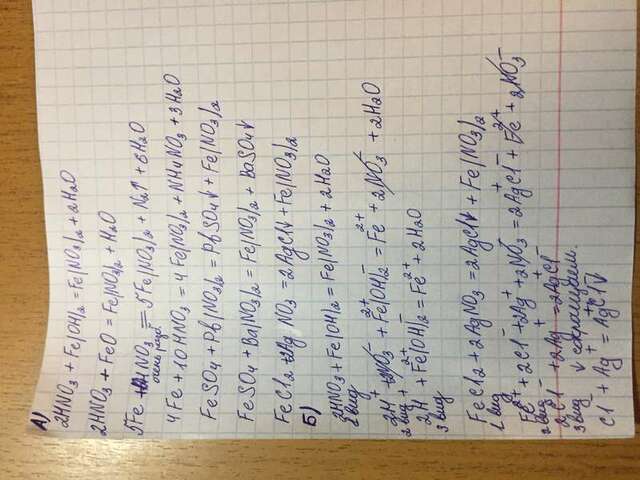 А)
2HNO3 + Fe(OH)2 = Fe(NO3)2 + 2H2O
2HNO3 + FeO = Fe(NO3)2 + H2O
5Fe + HNO3 = 5Fe(NO3)2 + N2↑ + 6H2O
очень разб.
4Fe + 10HNO3 = 4Fe(NO3)2 + NH4NO3 + 3H2O
FeSO4 + Pb(NO3)2 = PbSO4↓ + Fe(NO3)2
FeSO4 + Ba(NO3)2 = Fe(NO3)2 + BaSO4↓
FeCl2 + 2AgNO3 = 2AgCl↓ + Fe(NO3)2
Б)
2HNO3 + Fe(OH)2 = Fe(NO3)2 + 2H2O
1 вид
2H⁺ + 2NO3⁻ + Fe²⁺(OH)2⁻ = Fe²⁺ + 2NO3⁻ + 2H2O
2 вид
2H⁺ + Fe²⁺(OH)2⁻ = Fe²⁺ + 2H2O
3 вид
FeCl2 + 2AgNO3 = 2AgCl↓ + Fe(NO3)2
1 вид
Fe²⁺ + 2Cl⁻ + 2Ag⁺ + 2NO3⁻ = 2Ag⁺Cl⁻ + Fe²⁺ + 2NO3⁻
2 вид
2Cl⁻ + 2Ag⁺ = 2Ag⁺Cl⁻
3 вид ↓ сокращаем.
Cl⁻ + Ag⁺ = Ag⁺Cl⁻↓